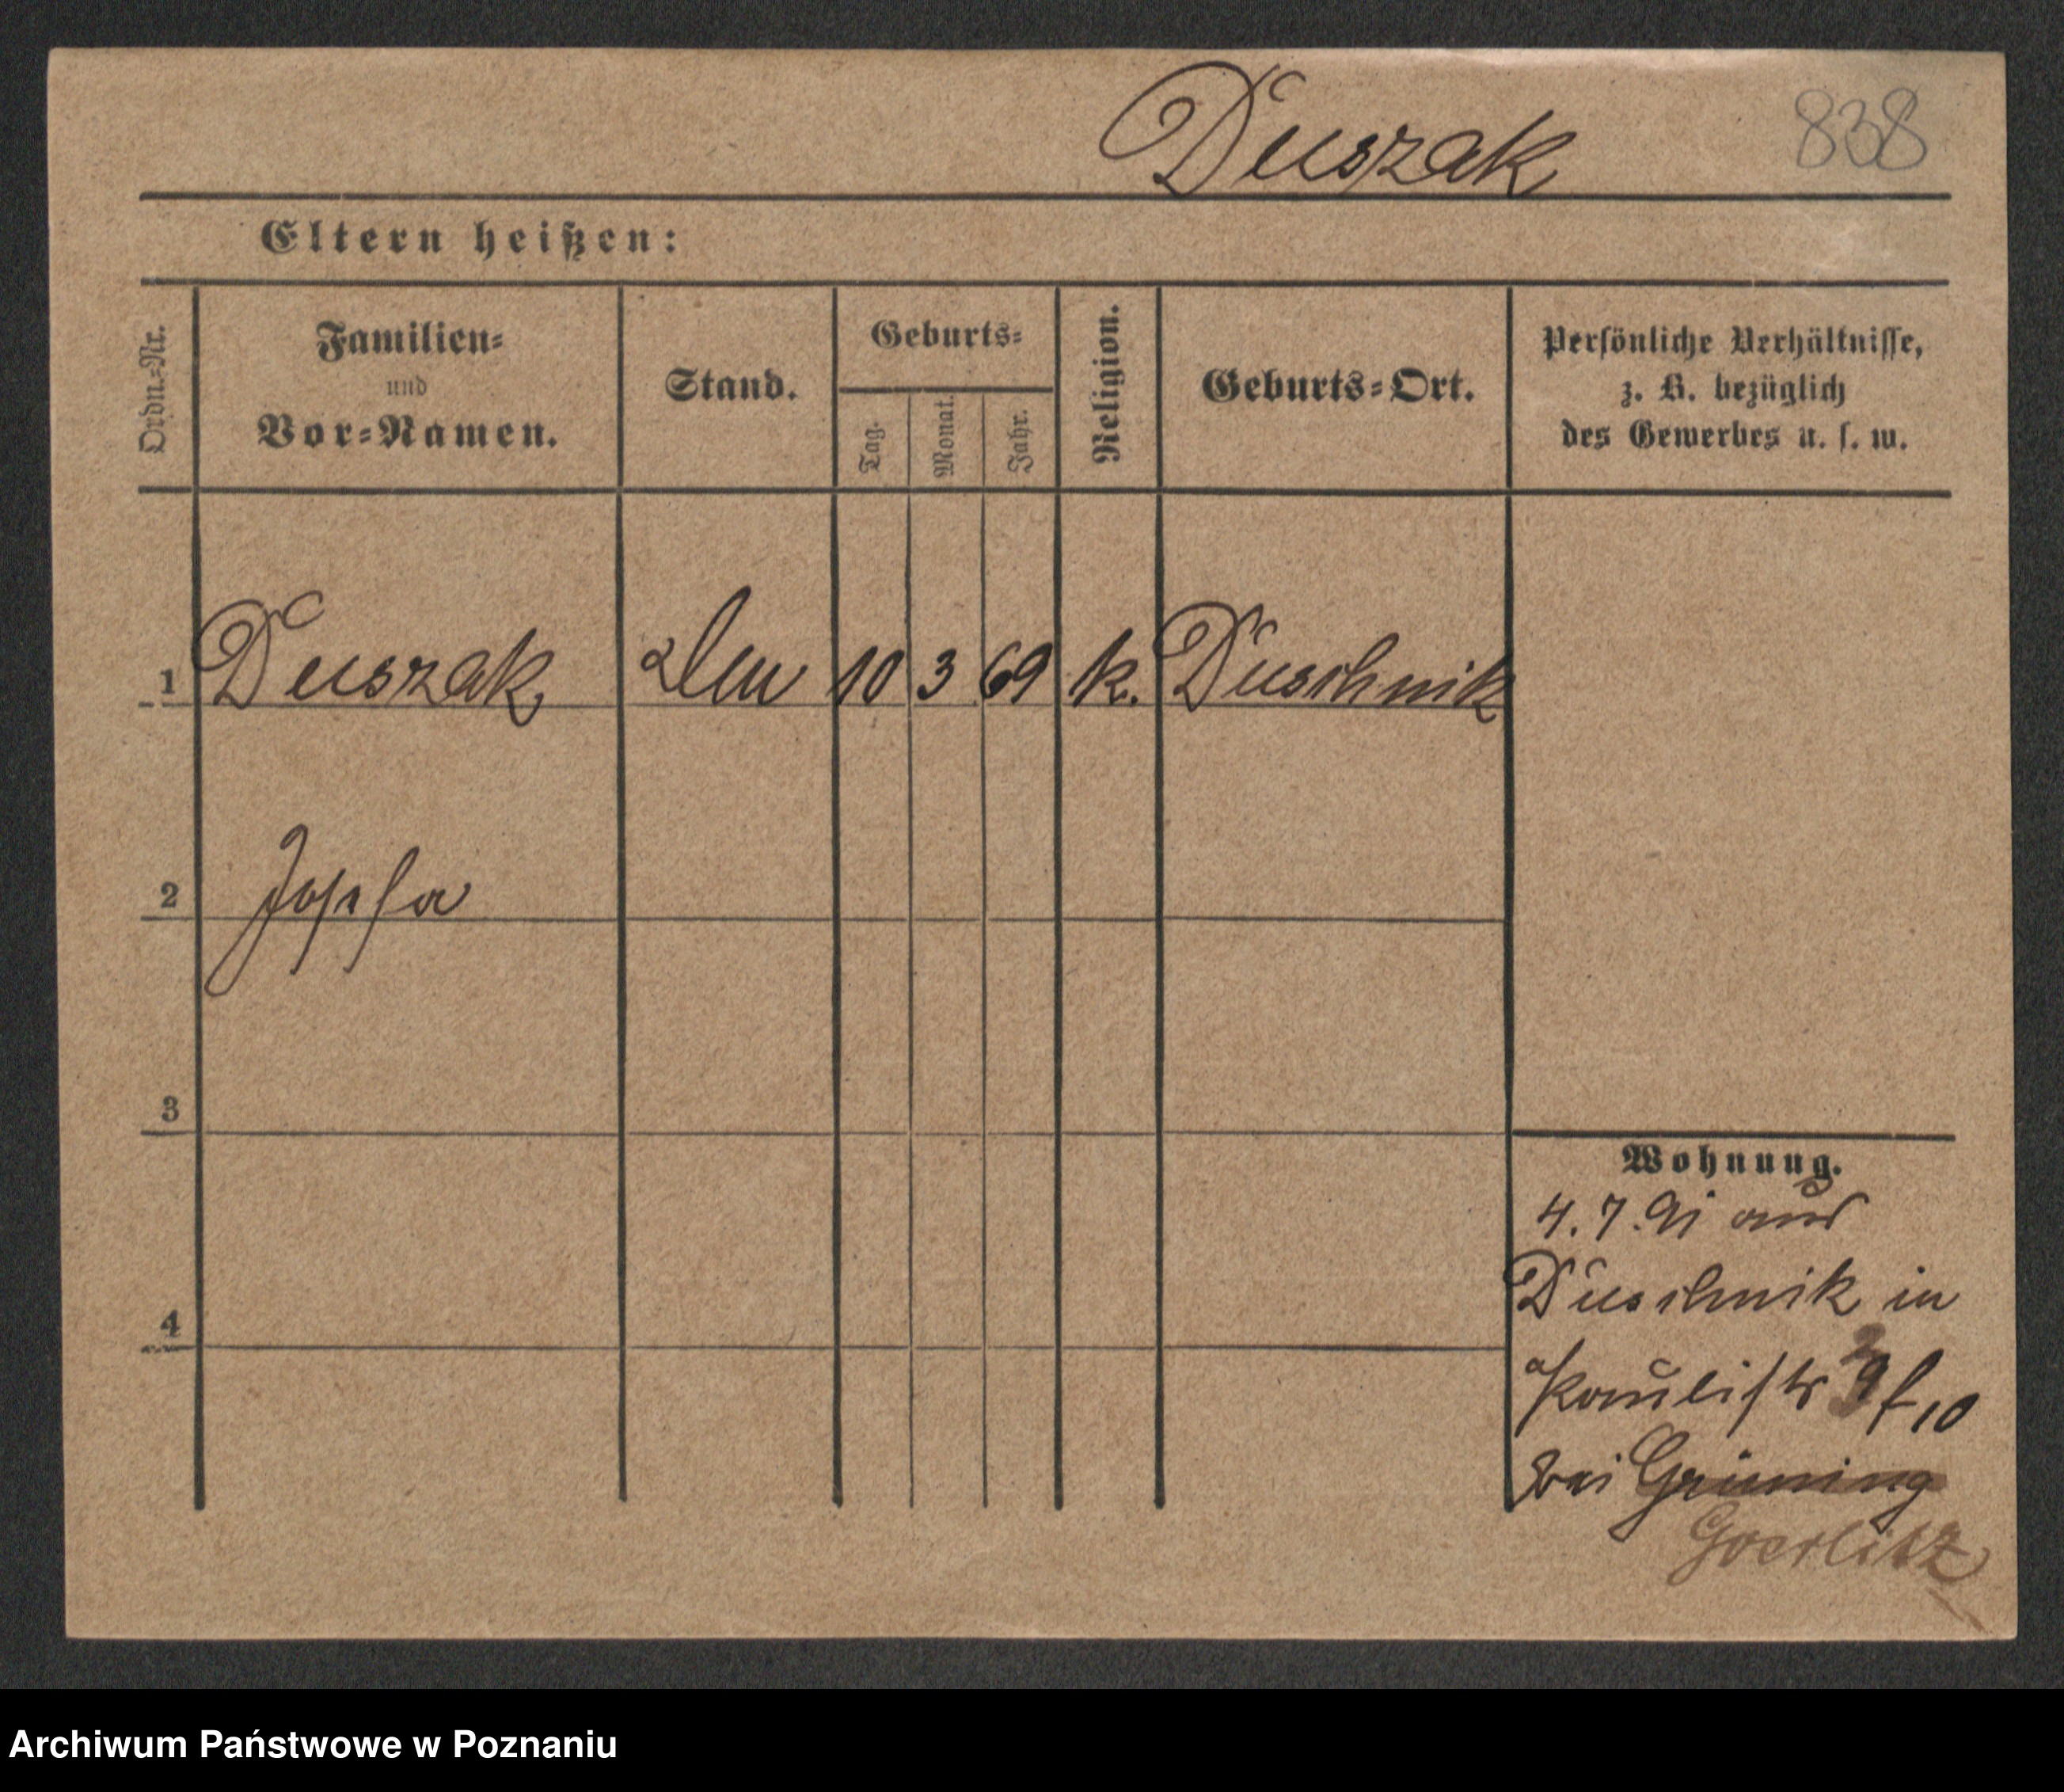 Duszak 838
Eltern heißen:
Ordn.-Nr.
Familien-
und
Vor-Namen.
Stand.
Geburts-
Tag.
Monat.
Jahr.
Religion.
Geburts-Ort.
Persönliche Verhältnisse,
z. B. bezüglich
des Gewerbes u. s. w.
1 Duszak 10 3 69 k. Duschnik
2 Josefa
3
4
Wohnung.
4. 7. 91 aus
Duschnik in
Paulistr f 10
bei Grüning
Goerlitz
Archiwum Państwowe w Poznaniu